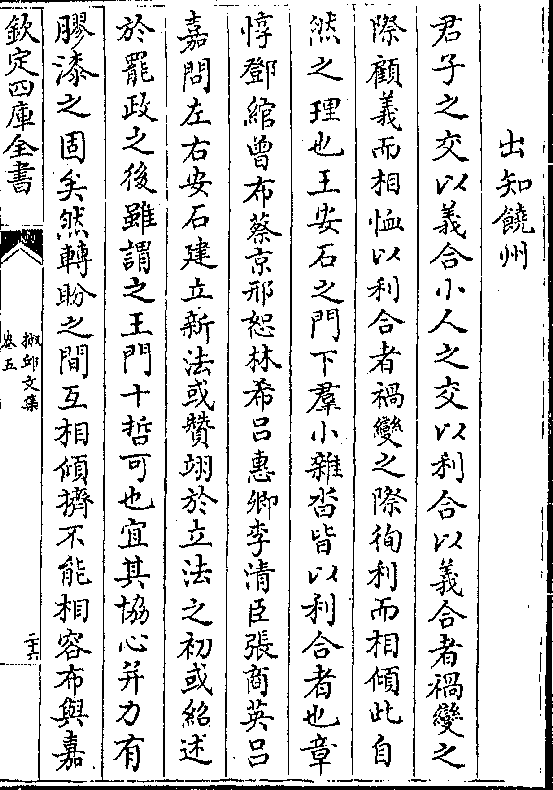 出知饒州
君子之交以義合小人之交以利合以義合者禍變之
際顧義而相恤以利合者禍變之際徇利而相傾此自
然之理也王安石之門下羣小雜沓皆以利合者也章
惇鄧綰曾布蔡京邢恕林希呂惠卿李清臣張商英呂
嘉問左右安石建立新法或贊翊於立法之初或紹述
於罷政之後雖謂之王門十哲可也宜其協心并力有
膠漆之固矣然轉盼之間互相傾擠不能相容布與嘉
欽定四庫全書
椒邱文集
卷五
二十六